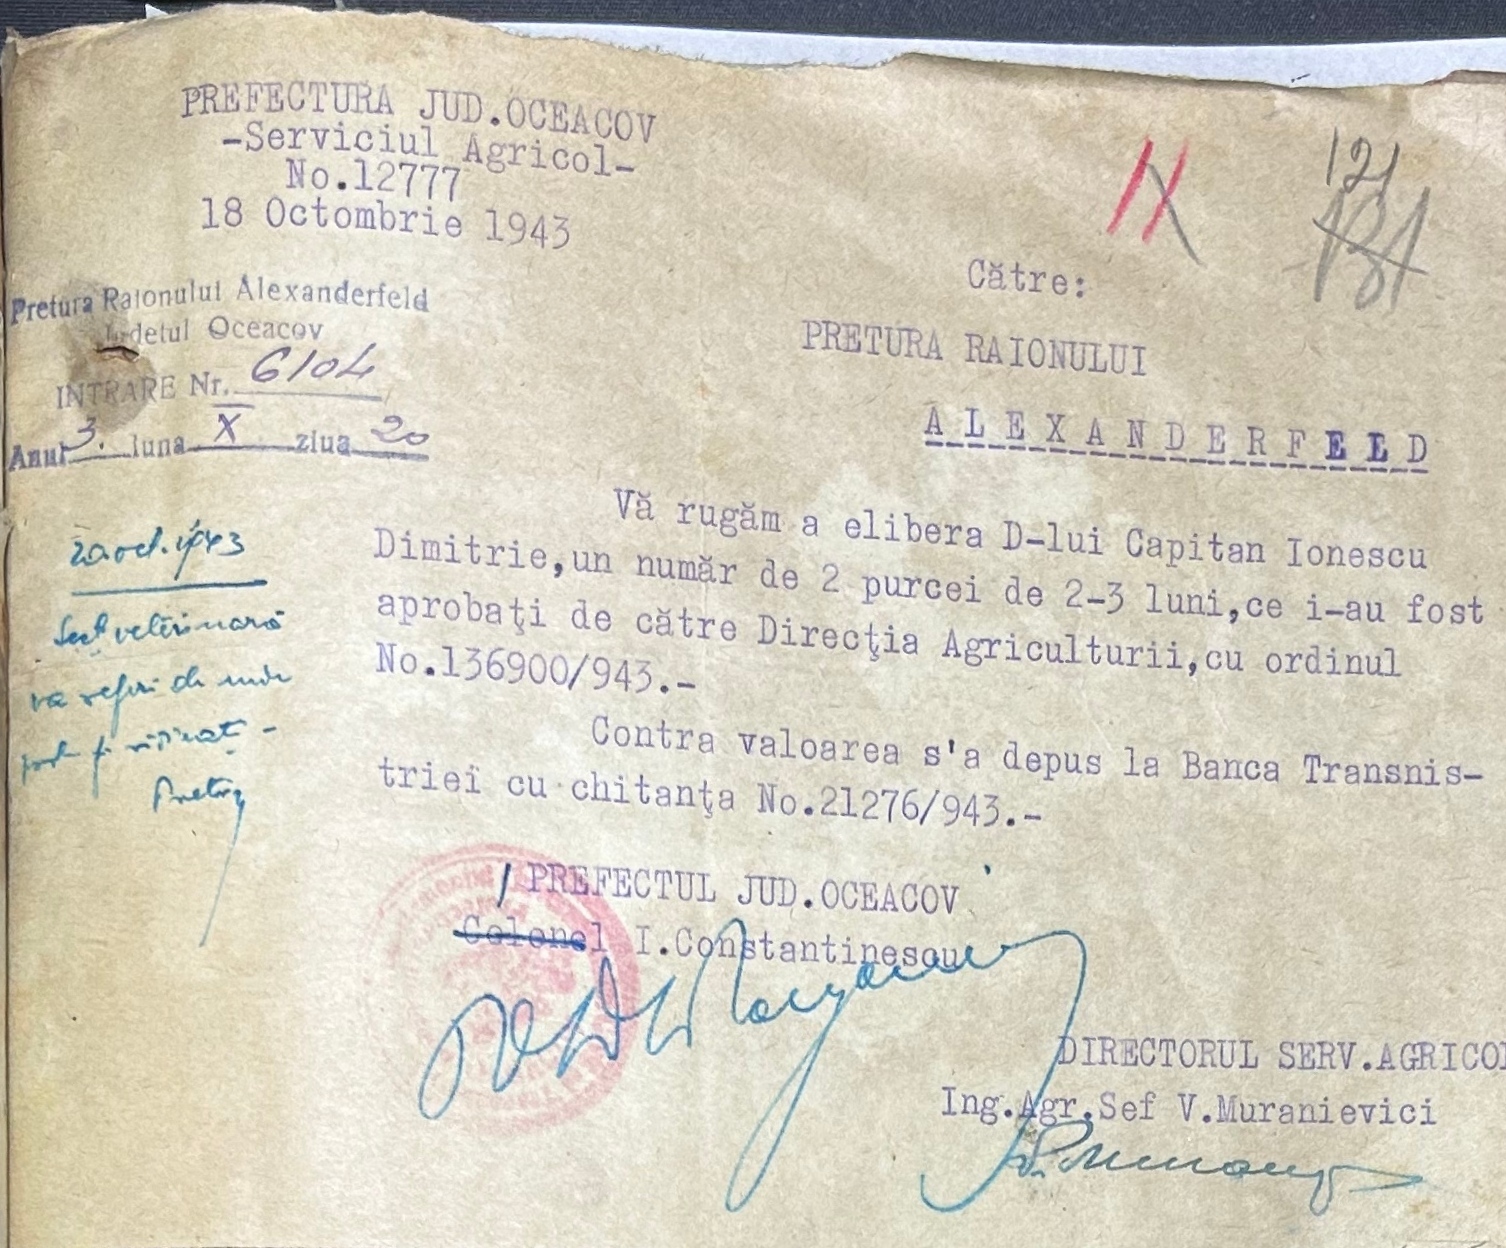 PREFECTURA JUD.OCEACOV
-Serviciul Agricol-
No.12777
18 Octombrie 1943
121
Către:
PRETURA RAIONULUI
A L E X A N D E R F E L D
Pretura Raionului Alexanderfeld
Judetul Oceacov
INTRARE Nr. 6104
Anul 3. luna X ziua 20
20 oct. 1943
veterinară
va referi de unde
pot fi
Pretor
Vă rugăm a elibera D-lui Capitan Ionescu
Dimitrie,un număr de 2 purcei de 2-3 luni,ce i-au fost
aprobaţi de către Direcţia Agriculturii,cu ordinul
No.136900/943.-
Contra valoarea s'a depus la Banca Transnis-
triei cu chitanţa No.21276/943.-
PREFECTUL JUD.OCEACOV
Colonel I.Constantinescu
DIRECTORUL SERV.AGRICOL
Ing.Agr.Sef V.Muranievici